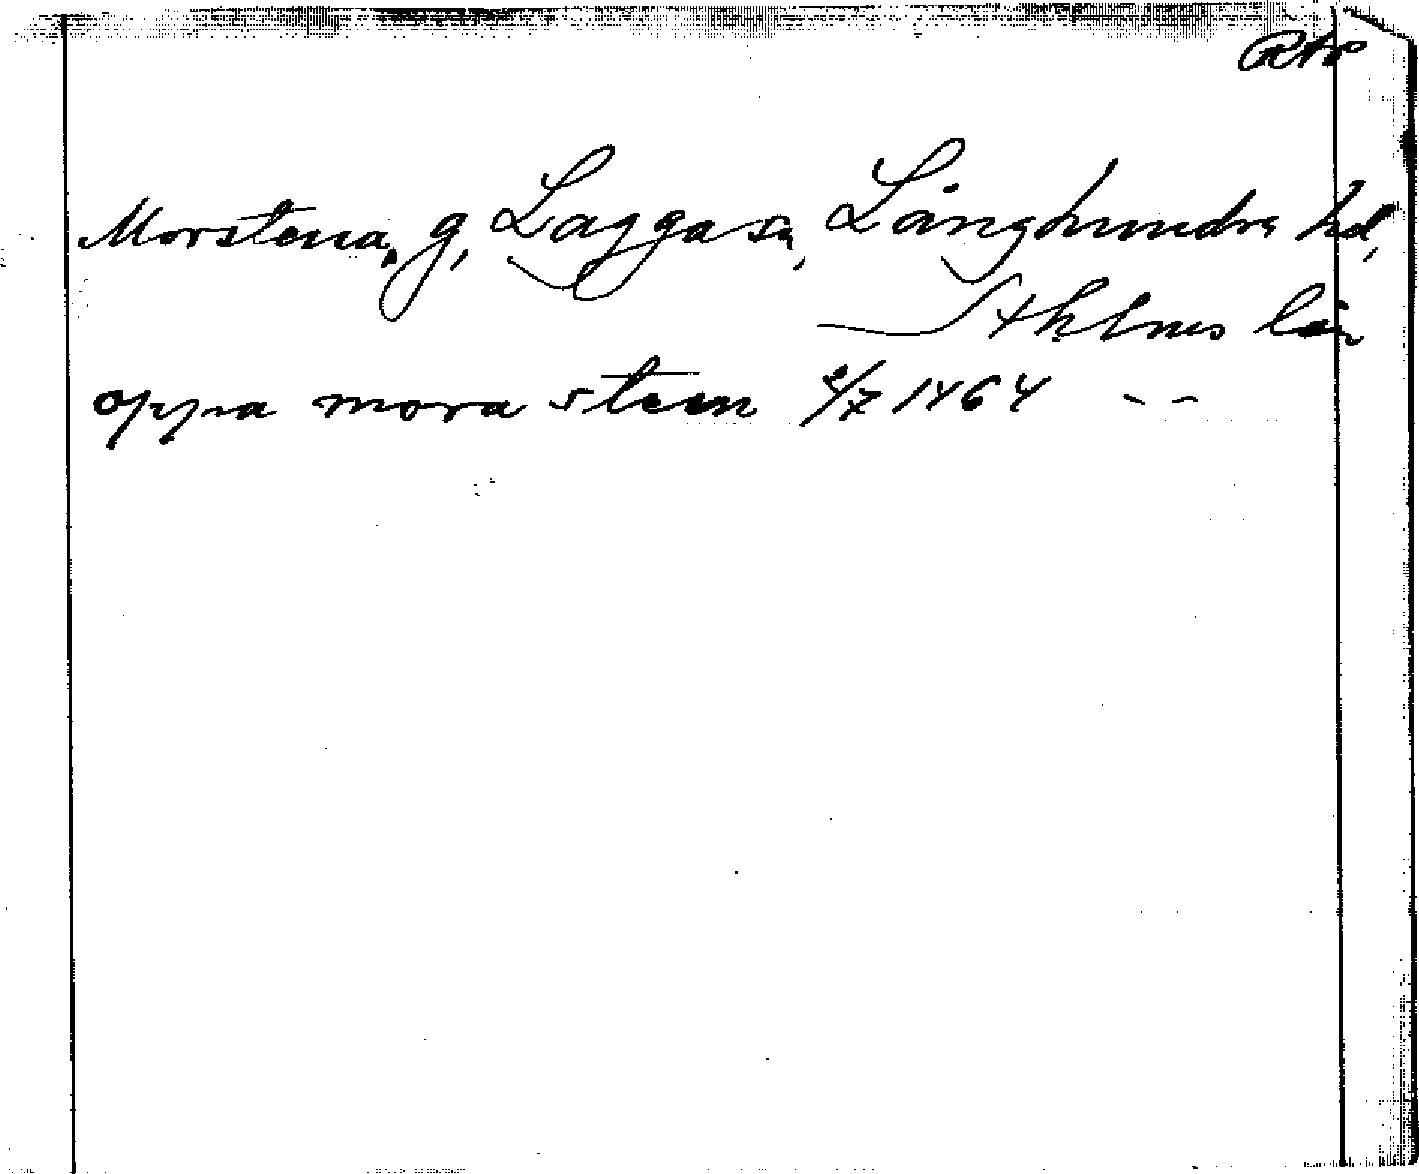 RAP
Morstena, g, Lagga sn, Långhundra hd,
Sthlms län
oppa mora steen 9/7 1464 --